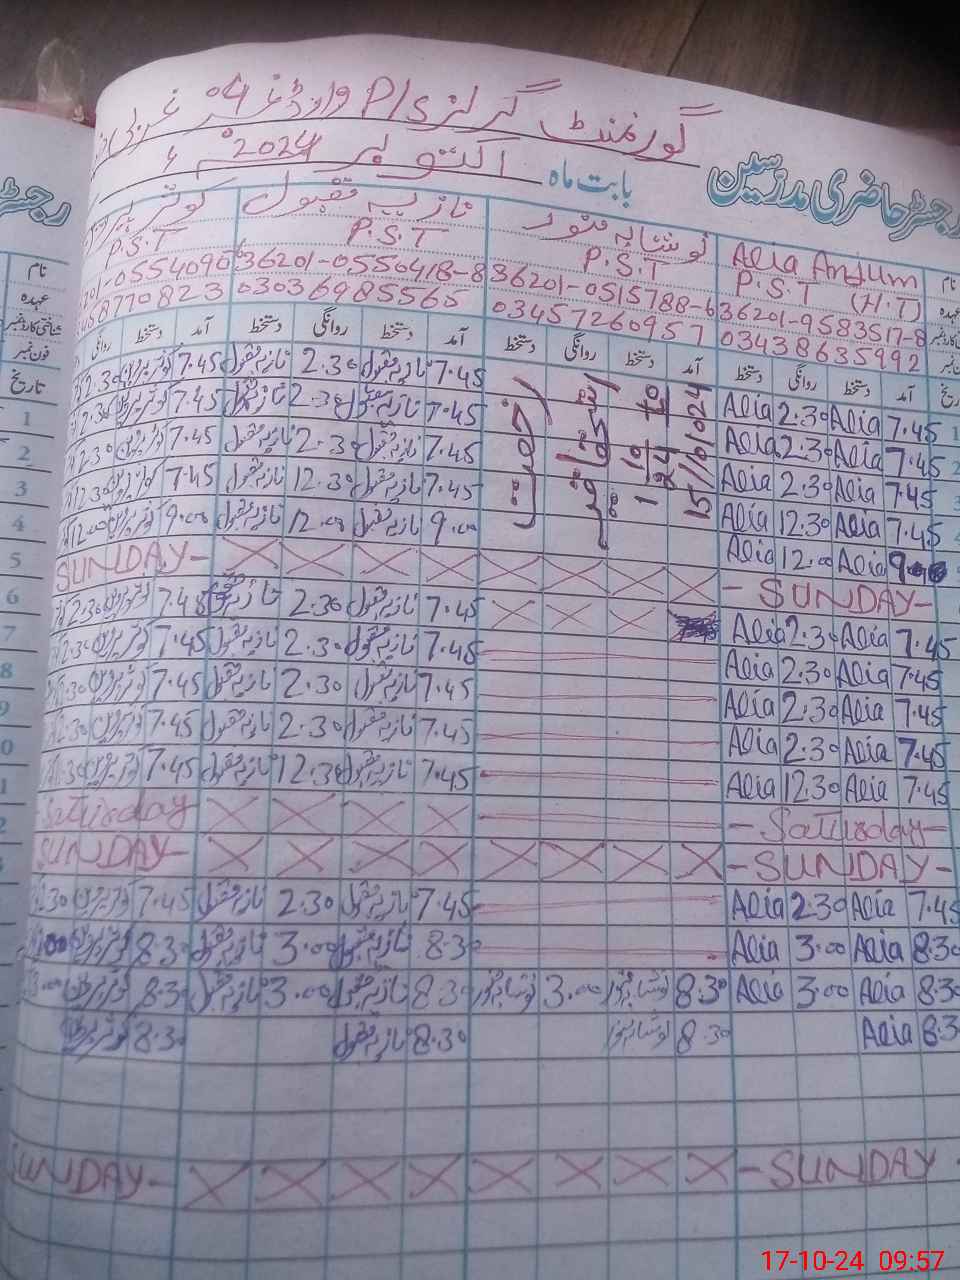 گورنمنٹ گرلز P/S وارڈ نمبر 4
رجسٹر حاضری مدرسین بابت ماہ اکتوبر 2024ء
نام Alia Anjum نوشابہ منور نازیہ مقبول کوثر
عہدہ P.S.T (H.T) P.S.T P.S.T P.S.T
شناختی کارڈ نمبر 36201-9583517-8 36201-0515788-6 36201-0550418-8
فون نمبر 03438635992 03457260957 03036985565
تاریخ آمد دستخط روانگی دستخط آمد دستخط روانگی دستخط آمد دستخط روانگی دستخط آمد دستخط روانگی
1 7.45 Alia 2.30 Alia 7.45 نازیہ مقبول 2.30 نازیہ مقبول 7.45 2.30
2 7.45 Alia 2.30 Alia 7.45 نازیہ مقبول 2.30 نازیہ مقبول 7.45 2.30
3 7.45 Alia 2.30 Alia 7.45 نازیہ مقبول 2.30 نازیہ مقبول 7.45 2.30
4 7.45 Alia 12.30 Alia 7.45 نازیہ مقبول 12.30 نازیہ مقبول 7.45 12.30
5 9.00 Alia 12.00 Alia 9.00 نازیہ مقبول 12.00 نازیہ مقبول 9.00 12.00
رخصت
1/10/24 to 15/10/024
6 -SUNDAY- SUNDAY-
7 7.45 Alia 2.30 Alia 7.45 نازیہ مقبول 2.30 نازیہ مقبول 7.45 2.30
8 7.45 Alia 2.30 Alia 7.45 نازیہ مقبول 2.30 نازیہ مقبول 7.45 2.30
9 7.45 Alia 2.30 Alia 7.45 نازیہ مقبول 2.30 نازیہ مقبول 7.45 2.30
7.45 Alia 2.30 Alia 7.45 نازیہ مقبول 2.30 نازیہ مقبول 7.45 2.30
7.45 Alia 12.30 Alia 7.45 نازیہ مقبول 12.30 نازیہ مقبول 7.45
-Saturday- Saturday
-SUNDAY- SUNDAY-
7.45 Alia 2.30 Alia 7.45 نازیہ مقبول 2.30 نازیہ مقبول 7.45
8.30 Alia 3.00 Alia 8.30 نازیہ مقبول 3.00 نازیہ مقبول 8.30
8.30 Alia 3.00 Alia 8.30 نوشابہ منور 3.00 نوشابہ منور 8.30 نازیہ مقبول 3.00 نازیہ مقبول 8.30
8.3 Alia 8.30 نوشابہ منور 8.30 نازیہ مقبول 8.30
-SUNDAY SUNDAY-
17-10-24 09:57